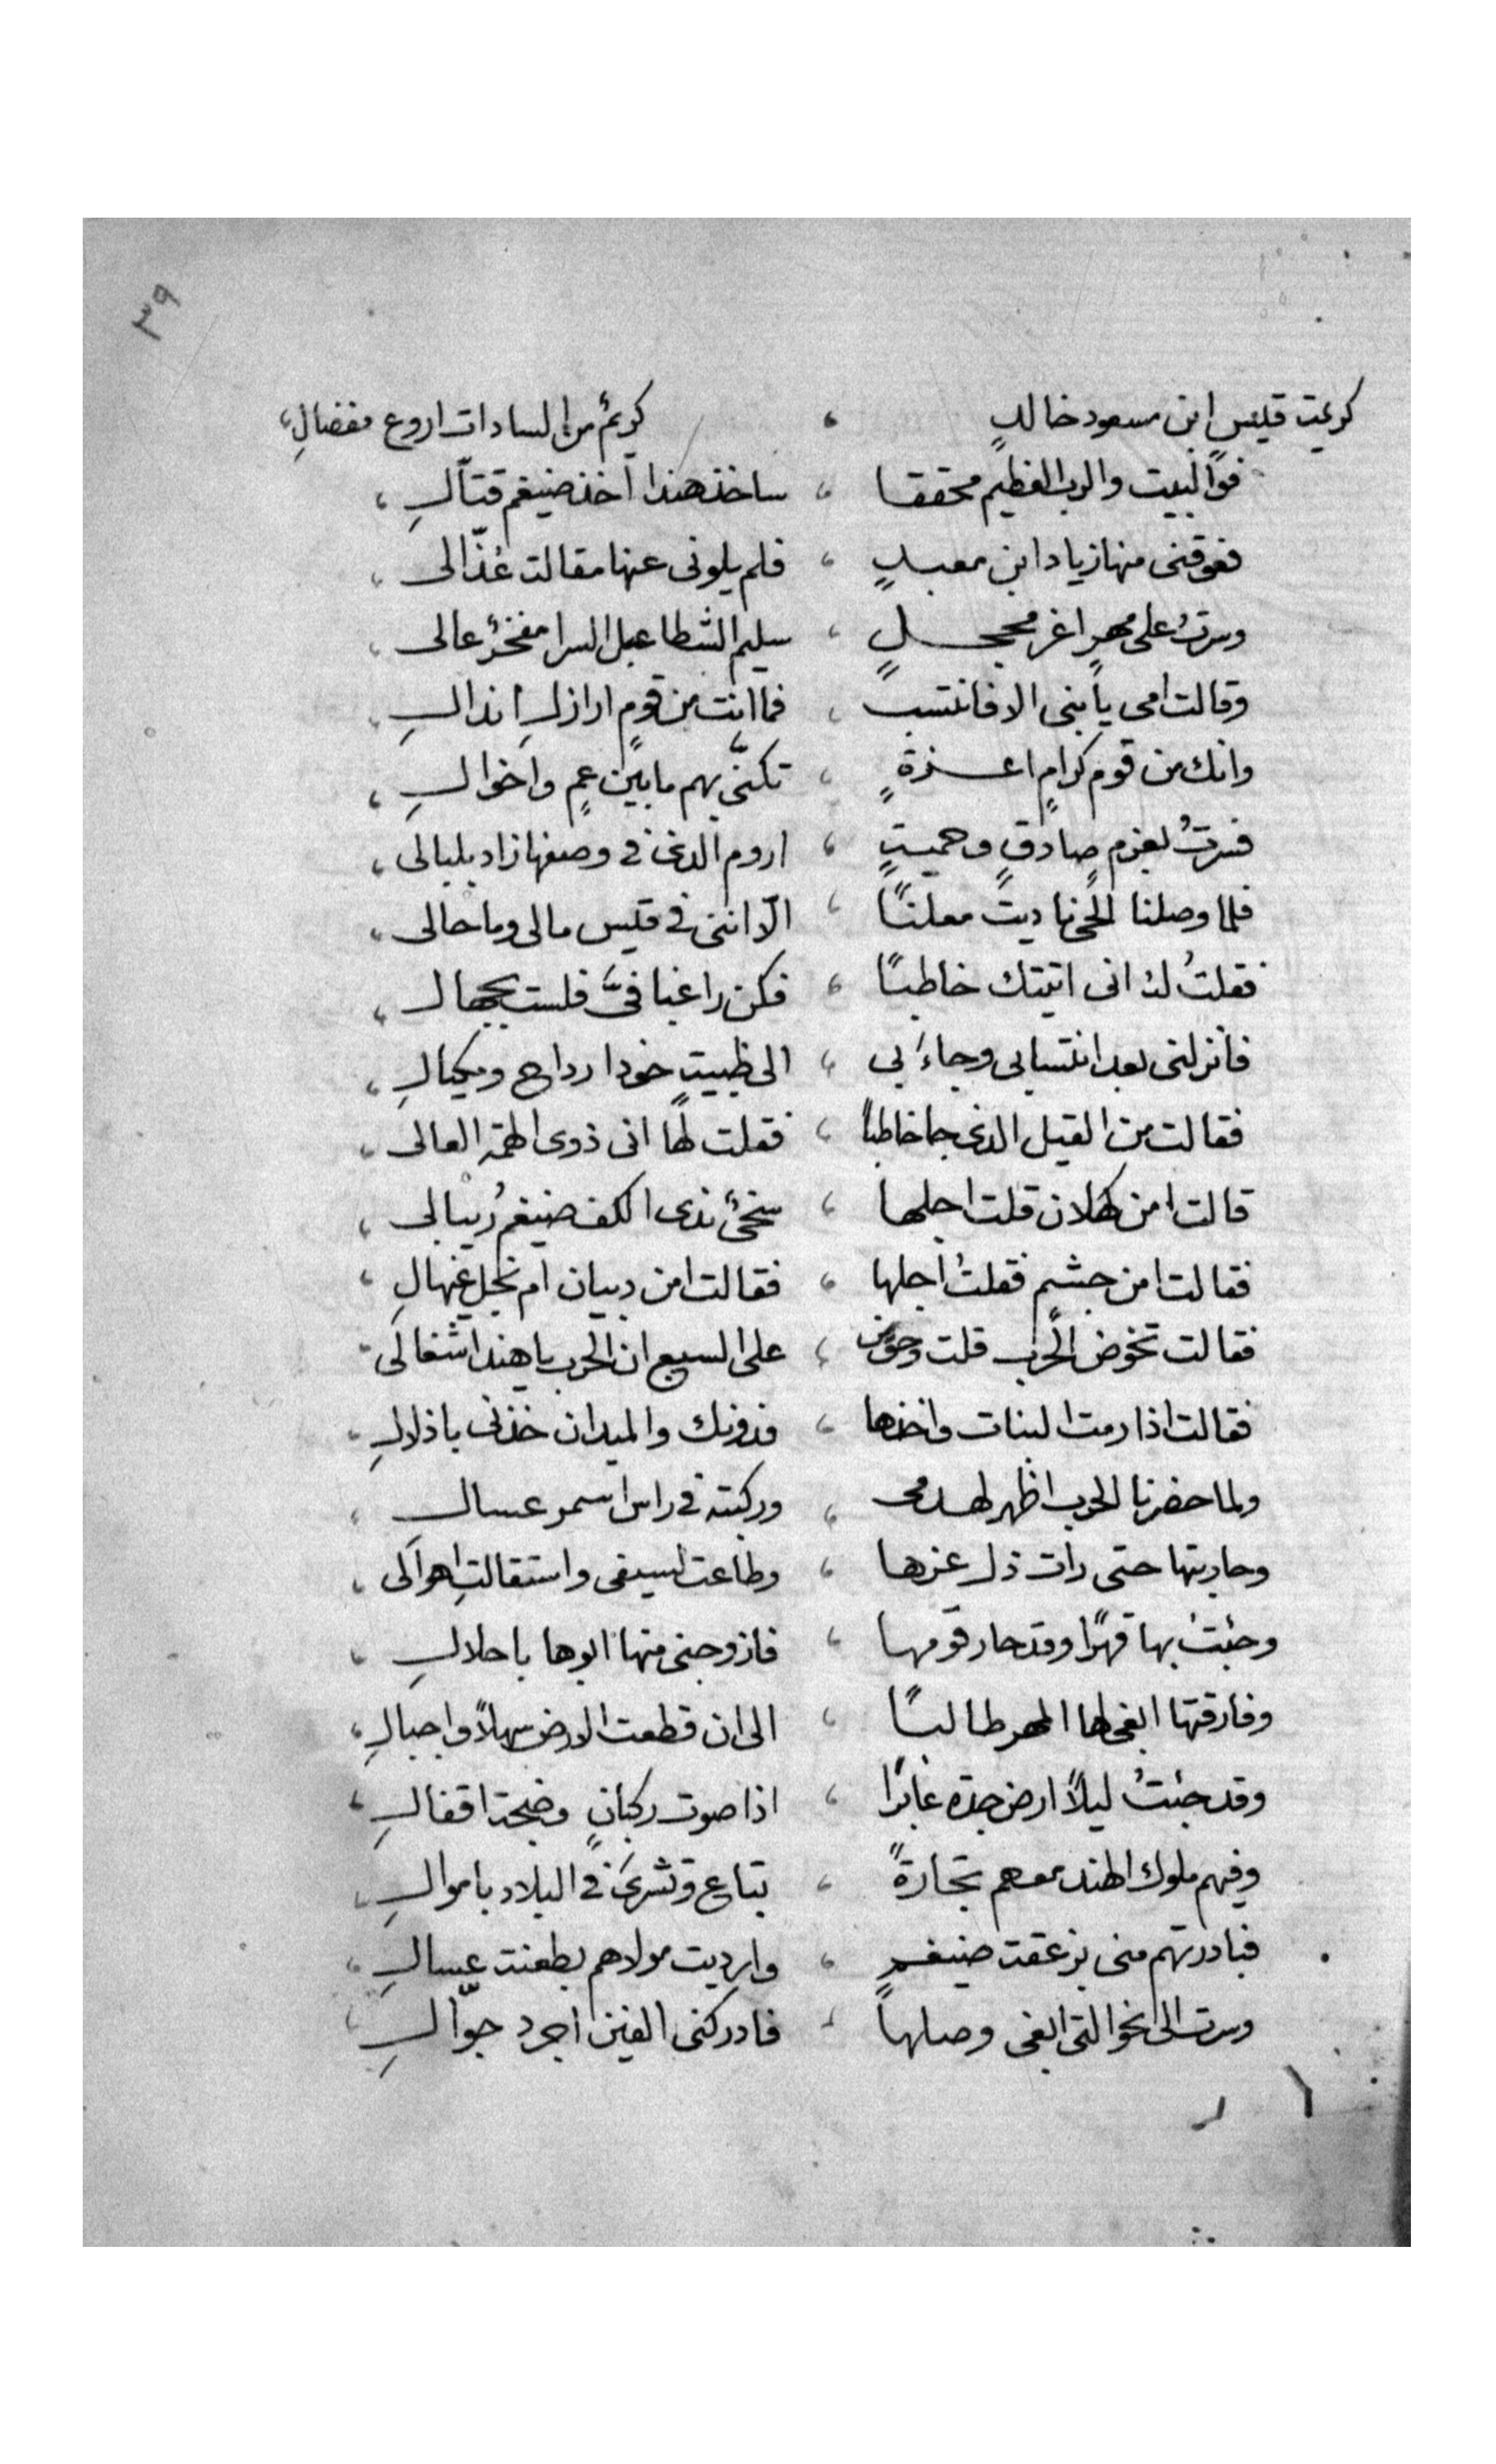 ٣٩
كريمت قيس ابن مسعود خالدٍ ، كريمٌ من السادات اروع مفضالِ ،
فوالبيت والرب العظيم محققا ، ساخذ هندا اخذ ضيغم قتّالِ ،
فعوقني منها زياد ابن معبدٍ ، فلم يلوني عنها مقالت عذّالى ،
وسرتُ على مهرٍ اغر محجلٍ ، سليم الشطا عبل السرا مفخرٌ عالى ،
وقالت امي يا بني الا فانتسب ، فما انت من قومٍ اراذلِ انذالِ ،
وانك من قوم كرامٍ اعزةٍ ، تكنّى بهم ما بين عمٍ واخوالِ ،
فسرتُ بعزمٍ صادقٍ وهميتٍ ، اروم الذى في وصفها زاد بلبالى ،
فلما وصلنا الحي ناديت معلنًا ، الا انني في قيس مالى وما حالى ،
فقلتُ له انى اتيتك خاطبًا ، فكن راغبا فيَّ فلست بجهال ،
فانزلنى بعد انتسابى وجاءَ بى ، الى ظبيتٍ خودا رداح ومكيالِ ،
فقالت من القيل الذى جا خاطباً ، فقلت لها انى ذوى الهمة العالى ،
قالت امن كهلان قلت اجلها ، سخىٌ ندى الكف ضيغمُ ريبالى ،
فقالت امن جشم فقلتُ اجلها ، فقالت امن دبيان ام نجل عنهالِ ،
فقالت تخوض الحرب قلت وحق من ، على السبع ان الحرب يا هند اشغالى
فقالت اذا رمت البنات واخذها ، فدونك والميدان خذنى باذلالِ ،
ولما حضرنا الحرب اظهر لهدمى ، وركبته في راس اسمر عسالِ ،
وحاربتها حتى رات ذل عزها ، وطاعت لسيفى واستقالت اهوالى ،
وجئتُ بها قهرًا وقد حار قومها ، فازوجنى منها ابوها باحلالِ ،
وفارقتها ابغى لها المهر طالبًا ، الى ان قطعت الارض سهلاً واجبالِ ،
وقد جئتُ ليلاً ارض جده عابرًا ، اذا صوت ركبانٍ وضجة اقفالِ ،
وفيهم ملوك الهند معهم تجارةً ، تباع وتشرى في البلاد باموالِ ،
فبادرتهم منى بزعقت ضيغمٍ ، وارديت مولاهم بطعنت عسالِ ،
وسرت الى نحو التى ابغى وصلها ، فادركنى الفين اجرد جوّالِ ،